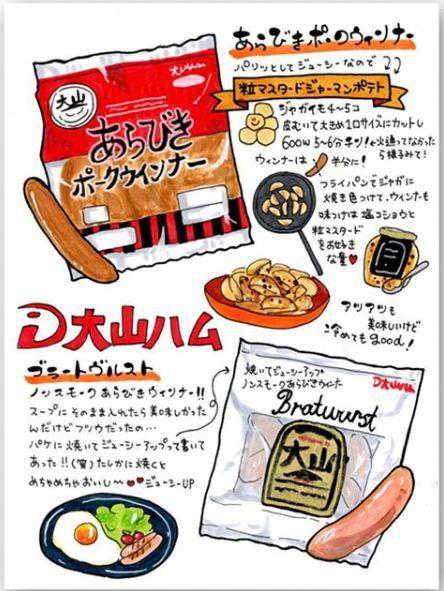 あらびきポークウィンナー
パリッとしてジューシーなので
粒マスタードジャーマンポテト
ジャガイモ4～5コ
皮むいて大きめ1口サイズにカットし
600w 5～6分チン!←火通ってなかったら様子みて!
ウィンナーは 半分に!
フライパンでジャガに
焼き色つけて、ウィンナーも
味つけは 塩コショウと
粒マスタード
をお好き
な量♥
アツアツも
美味しいけど
冷めてもgood!
大山
大山ハム
あらびき
ポークウインナー
大山ハム
ブラートヴルスト
ノンスモークあらびきウィンナー!!
スープにそのまま入れたら美味しかった
んだけどフツウだったの…
パケに焼いてジューシーアップって書いて
あった!!(笑)たしかに焼くと
めちゃめちゃおいし～♥♥ジューシーUP
焼いてジューシーアップ
ノンスモークあらびきウインナー
大山ハム
Bratwurst
大山